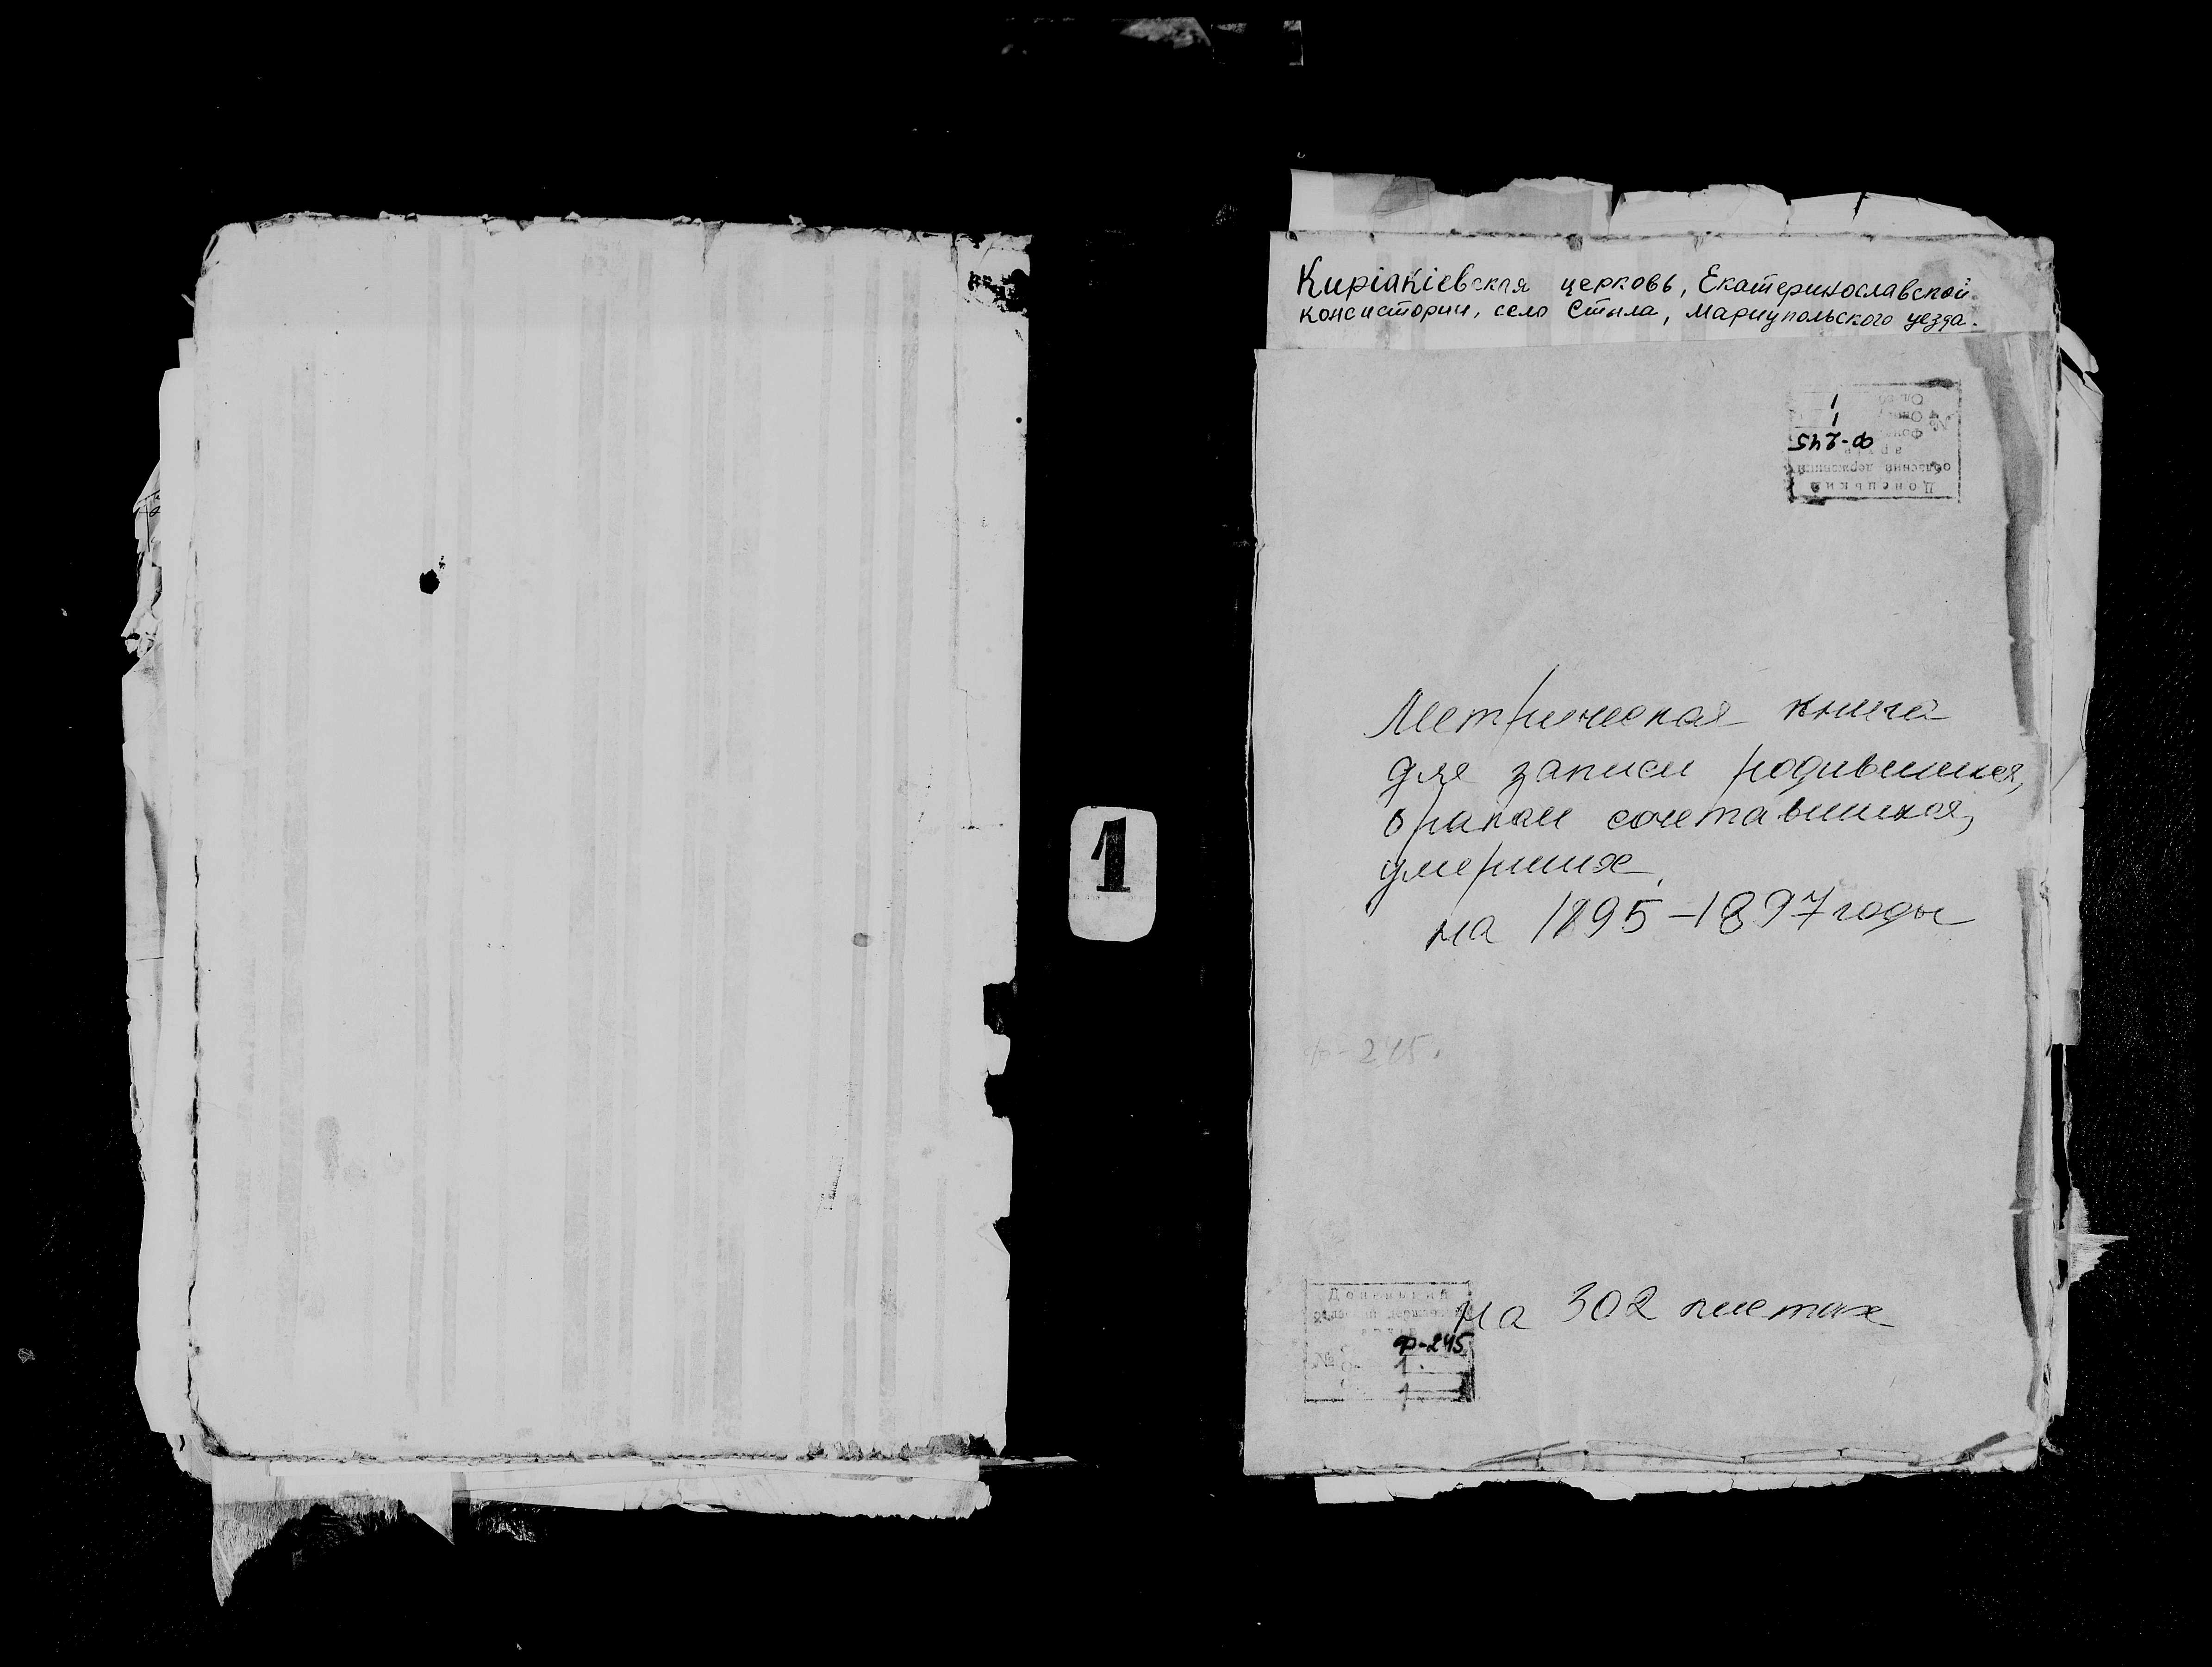 Киріакіевская церковь, Екатеринославской
консистории, село Стыла, Мариупольского уезда.
Донецький
обласний державний
архів
Фонд Ф-245
№ Опису 1
Од. зб. 1
Метрическая книга
для записи родившихся,
браком сочетавшихся,
умерших
на 1895-1897 годы
1
ф-245.
на 302 листах
Донецький
обласний державний
№ Ф-245
1.
1